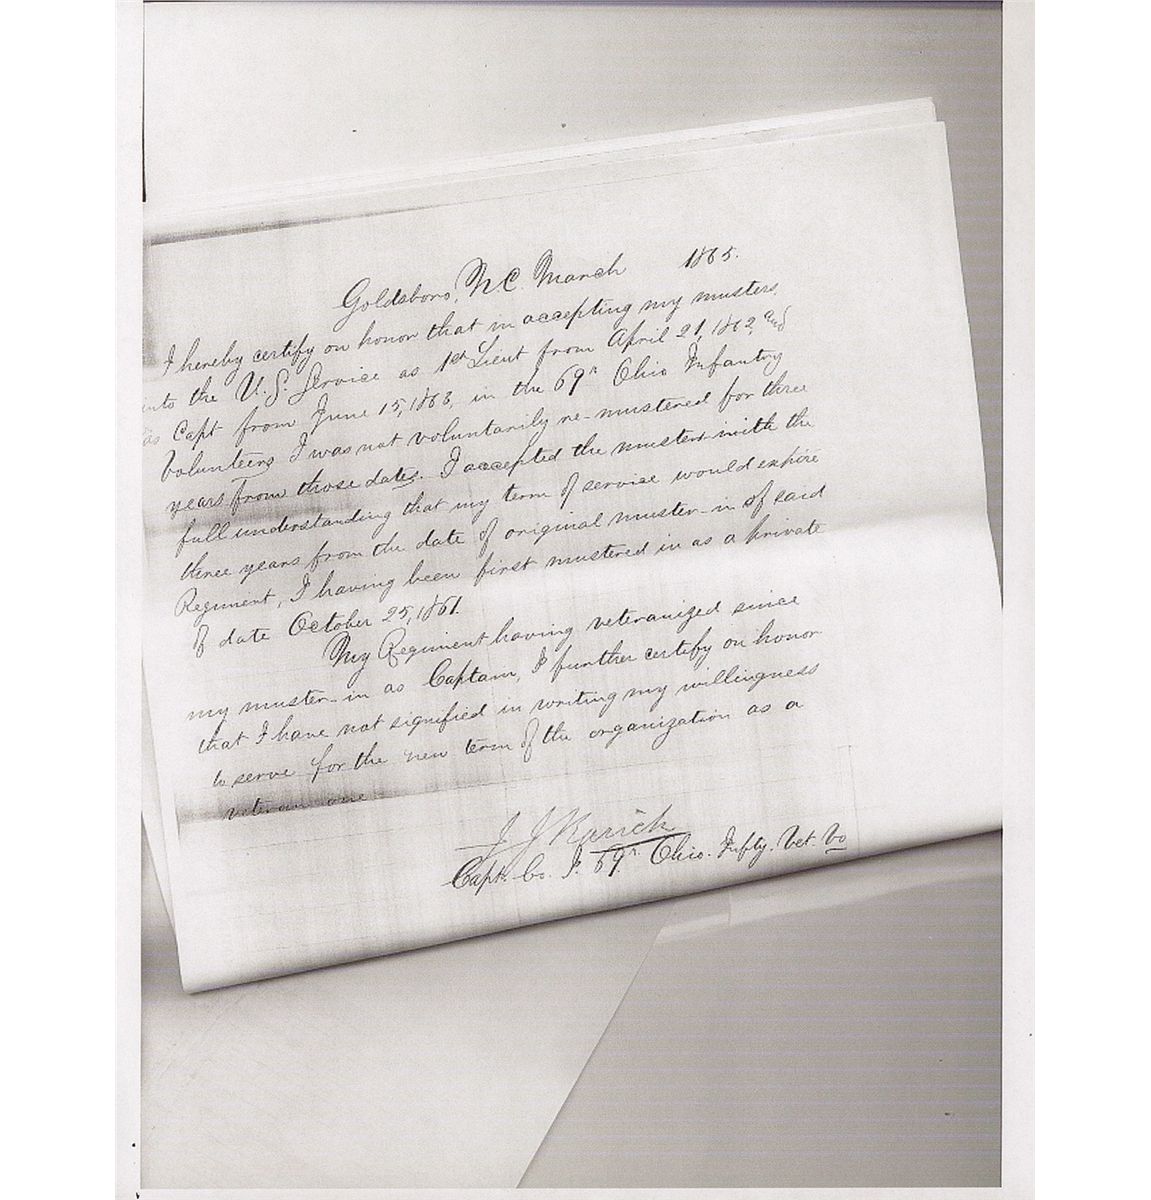 Goldsboro, N.C. March 1865.
I hereby certify on honor that in accepting my musters
into the U.S. Service as 1st Lieut from April 21, 1862, and
as Capt from June 15, 1863, in the 69th Ohio Infantry
Volunteers I was not voluntarily re-mustered for three
years from those dates. I accepted the musters with the
full understanding that my term of service would expire
three years from the date of original muster-in of said
Regiment, I having been first mustered in as a private
of date October 25, 1861.
My Regiment having veteranized since
my muster-in as Captain, I further certify on honor
that I have not signified in writing my willingness
to serve for the new term of the organization as a
veteran one
J J Rarick
Capt. Co. I. 69th Ohio. Infty. Vet. Vo